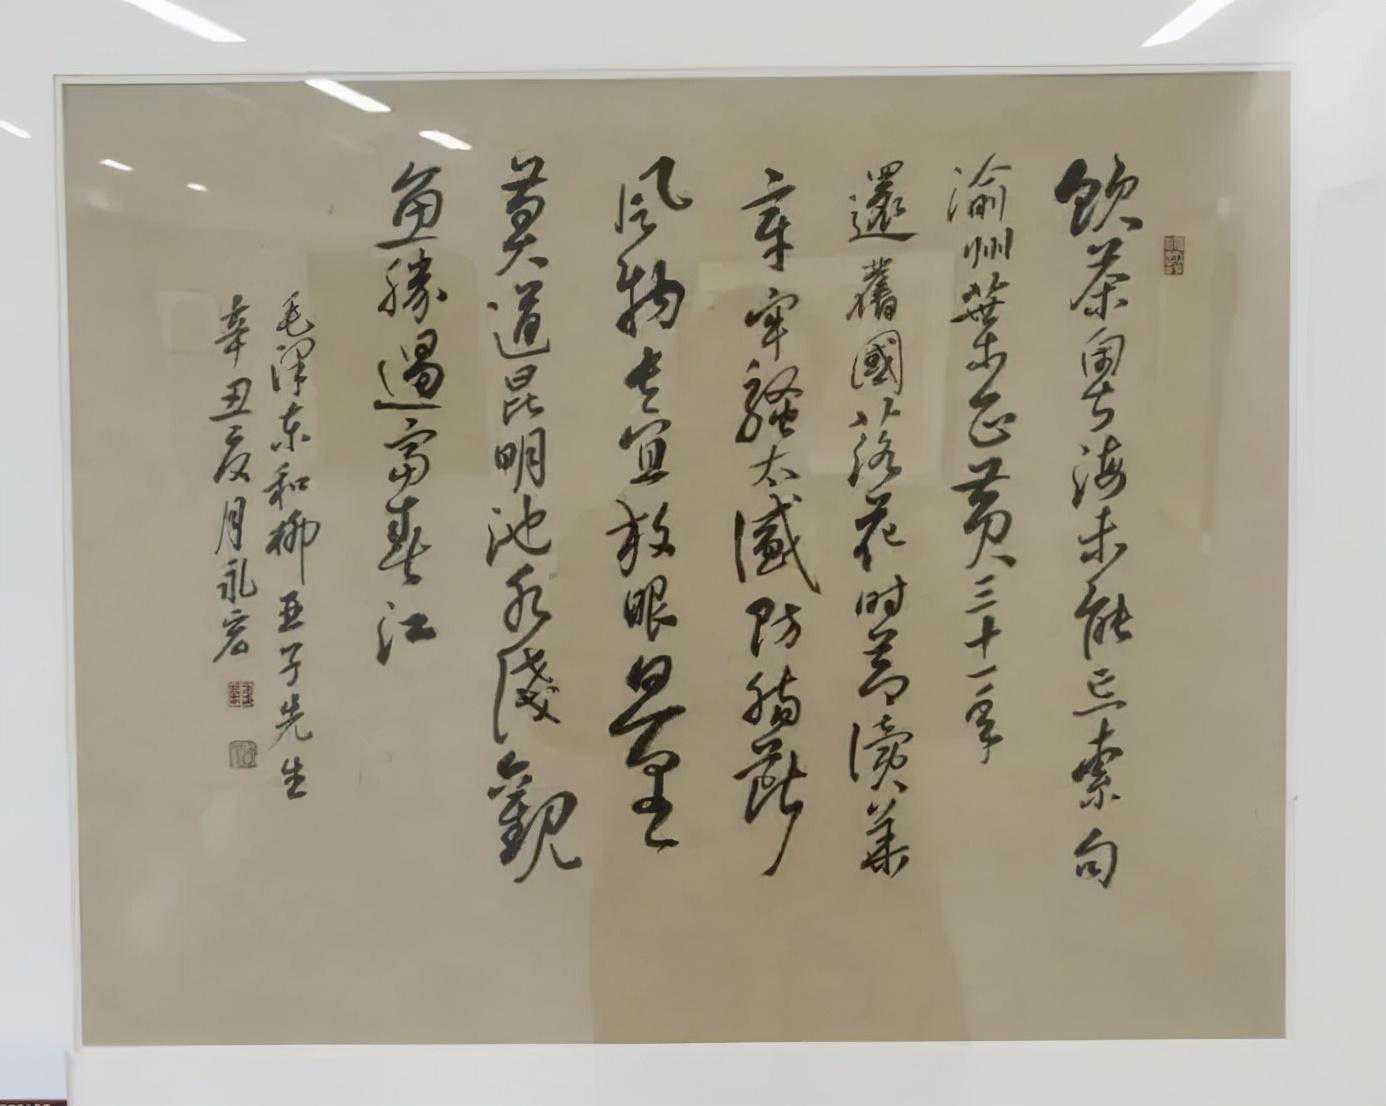 飲茶粤海未能忘索句
渝州葉正黄三十一年
還舊國落花时節讀華
章牢騷太盛防腸斷
風物長宜放眼量
莫道昆明池水淺觀
魚勝過富春江
毛澤东和柳亚子先生
辛丑夏月礼宏